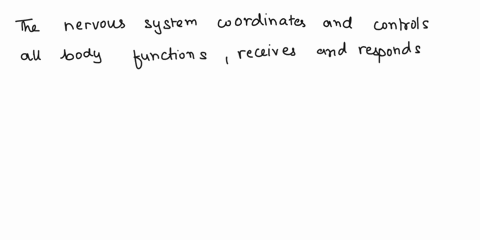 The nervous system coordinates and controls
all body functions, receives and responds